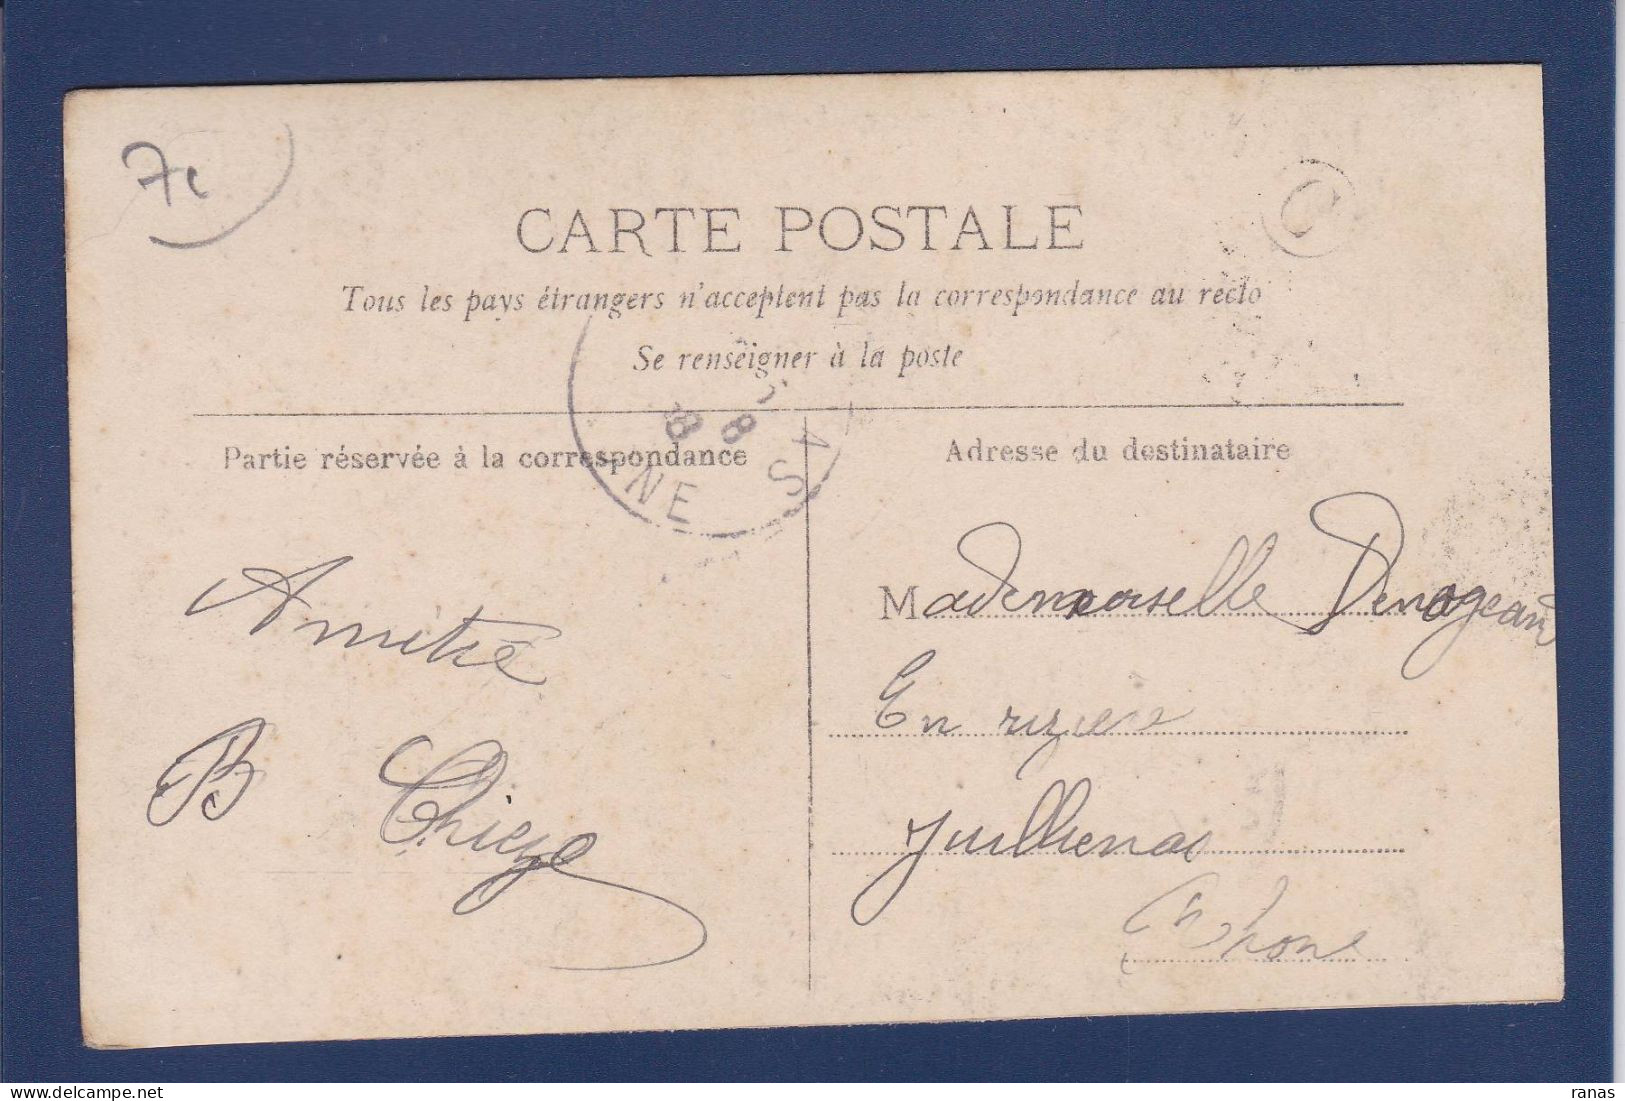 7c
C
CARTE POSTALE
Tous les pays étrangers n'acceptent pas la correspondance au recto
Se renseigner à la poste
Partie réservée à la correspondance
Adresse du destinataire
8 8
NE
Amitié
B Chieze
Mademoiselle
En
Jullienas
Rhone
ranas
delcampe.net